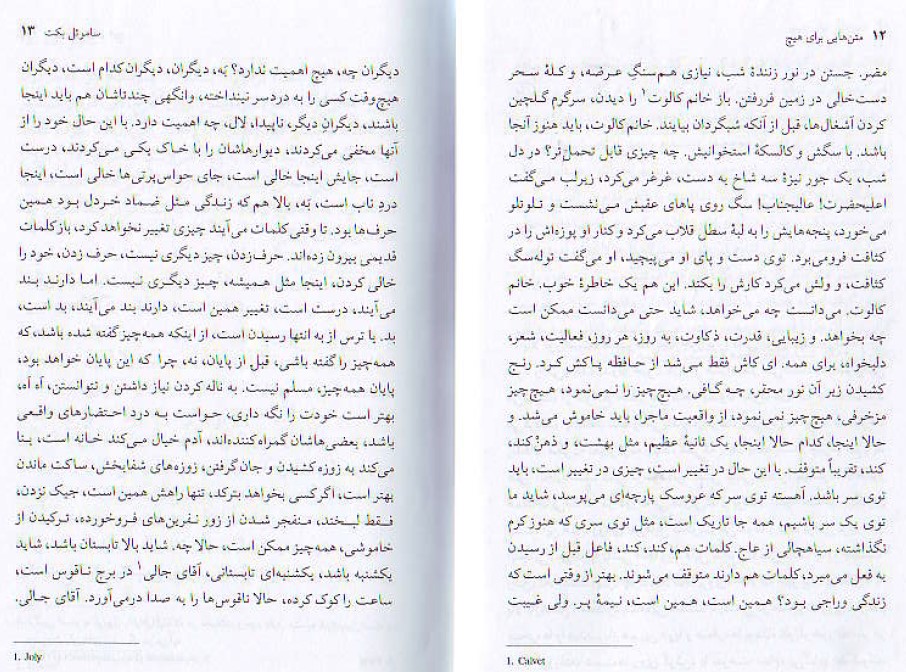 ۱۲ متن‌هایی برای هیچ
مضر. جستن در نور زنندهٔ شب، نیازی هم‌سنگِ عرضه، و کلهٔ سحر
دست‌خالی در زمین فررفتن. باز خانم کالوت۱ را دیدن، سرگرم گلچین
کردن آشغال‌ها، قبل از آنکه شبگردان بیایند. خانم کالوت، باید هنوز آنجا
باشد. با سگش و کالسکهٔ استخوانیش. چه چیزی قابل تحمل‌تر؟ در دل
شب، یک جور نیزهٔ سه شاخ به دست، غرغر می‌کرد، زیرلب می‌گفت
اعلیحضرت! عالیجناب! سگ روی پاهای عقبش می‌نشست و تلوتلو
می‌خورد، پنجه‌هایش را به لبهٔ سطل قلاب می‌کرد و کنار او پوزه‌اش را در
کثافت فرومی‌برد. توی دست و پای او می‌پیچید، او می‌گفت توله‌سگ
کثافت، و ولش می‌کرد کارش را بکند. این هم یک خاطرهٔ خوب. خانم
کالوت. می‌دانست چه می‌خواهد، شاید حتی می‌دانست ممکن است
چه بخواهد. و زیبایی، قدرت، ذکاوت، به روز، هر روز، فعالیت، شعر،
دلبخواه، برای همه. ای کاش فقط می‌شد از حافظه پاکش کرد. رنج
کشیدن زیر آن نور محقر، چه گافی. هیچ‌چیز را نمی‌نمود، هیچ‌چیز
مزخرفی، هیچ‌چیز نمی‌نمود، از واقعیت ماجرا، باید خاموش می‌شد. و
حالا اینجا، کدام حالا اینجا، یک ثانیهٔ عظیم، مثل بهشت، و ذهنْ کند،
کند، تقریباً متوقف. با این حال در تغییر است، چیزی در تغییر است، باید
توی سر باشد. آهسته توی سر که عروسک پارچه‌ای می‌پوسد، شاید ما
توی یک سر باشیم، همه جا تاریک است، مثل توی سری که هنوز کرم
نگذاشته، سیاهچالی از عاج. کلمات هم، کند، کند، فاعل قبل از رسیدن
به فعل می‌میرد، کلمات هم دارند متوقف می‌شوند. بهتر از وقتی است که
زندگی وراجی بود؟ همین است، همین است، نیمهٔ پر. ولی غیبت
1. Calvet
ساموئل بکت ۱۳
دیگران چه، هیچ اهمیت ندارد؟ بَه، دیگران، دیگران کدام است، دیگران
هیچ‌وقت کسی را به دردسر نینداخته، وانگهی چندتاشان هم باید اینجا
باشند، دیگرانِ دیگر، ناپیدا، لال، چه اهمیت دارد. با این حال خود را از
آنها مخفی می‌کردند، دیوارهاشان را با خاک یکی می‌کردند، درست
است، جایش اینجا خالی است، جای حواس‌پرتی‌ها خالی است، اینجا
دردِ ناب است، بَه، بالا هم که زندگی مثل ضماد خردل بود همین
حرف‌ها بود. تا وقتی کلمات می‌آیند چیزی تغییر نخواهد کرد، باز کلمات
قدیمی بیرون زده‌اند. حرف‌زدن، چیز دیگری نیست، حرف زدن، خود را
خالی کردن، اینجا مثل همیشه، چیز دیگری نیست. اما دارند بند
می‌آیند، درست است، تغییر همین است، دارند بند می‌آیند، بد است،
بد. با ترس از به انتها رسیدن است، از اینکه همه‌چیز گفته شده باشد، که
همه‌چیز را گفته باشی، قبل از پایان، نه، چرا که این پایان خواهد بود،
پایان همه‌چیز، مسلم نیست. به ناله کردن نیاز داشتن و نتوانستن، آه آه،
بهتر است خودت را نگه داری، حواست به درد احتضارهای واقعی
باشد، بعضی‌هاشان گمراه‌کننده‌اند، آدم خیال می‌کند خانه است، بنا
می‌کند به زوزه کشیدن و جان گرفتن، زوزه‌های شفابخش، ساکت ماندن
بهتر است، اگر کسی بخواهد بترکد، تنها راهش همین است، جیک نزدن،
فقط لبخند، منفجر شدن از زور نفرین‌های فروخورده، ترکیدن از
خاموشی، همه‌چیز ممکن است، حالا چه. شاید بالا تابستان باشد، شاید
یکشنبه باشد، یکشنبه‌ای تابستانی، آقای جالی۱ در برج ناقوس است،
ساعت را کوک کرده، حالا ناقوس‌ها را به صدا درمی‌آورد. آقای جالی.
1. Joly